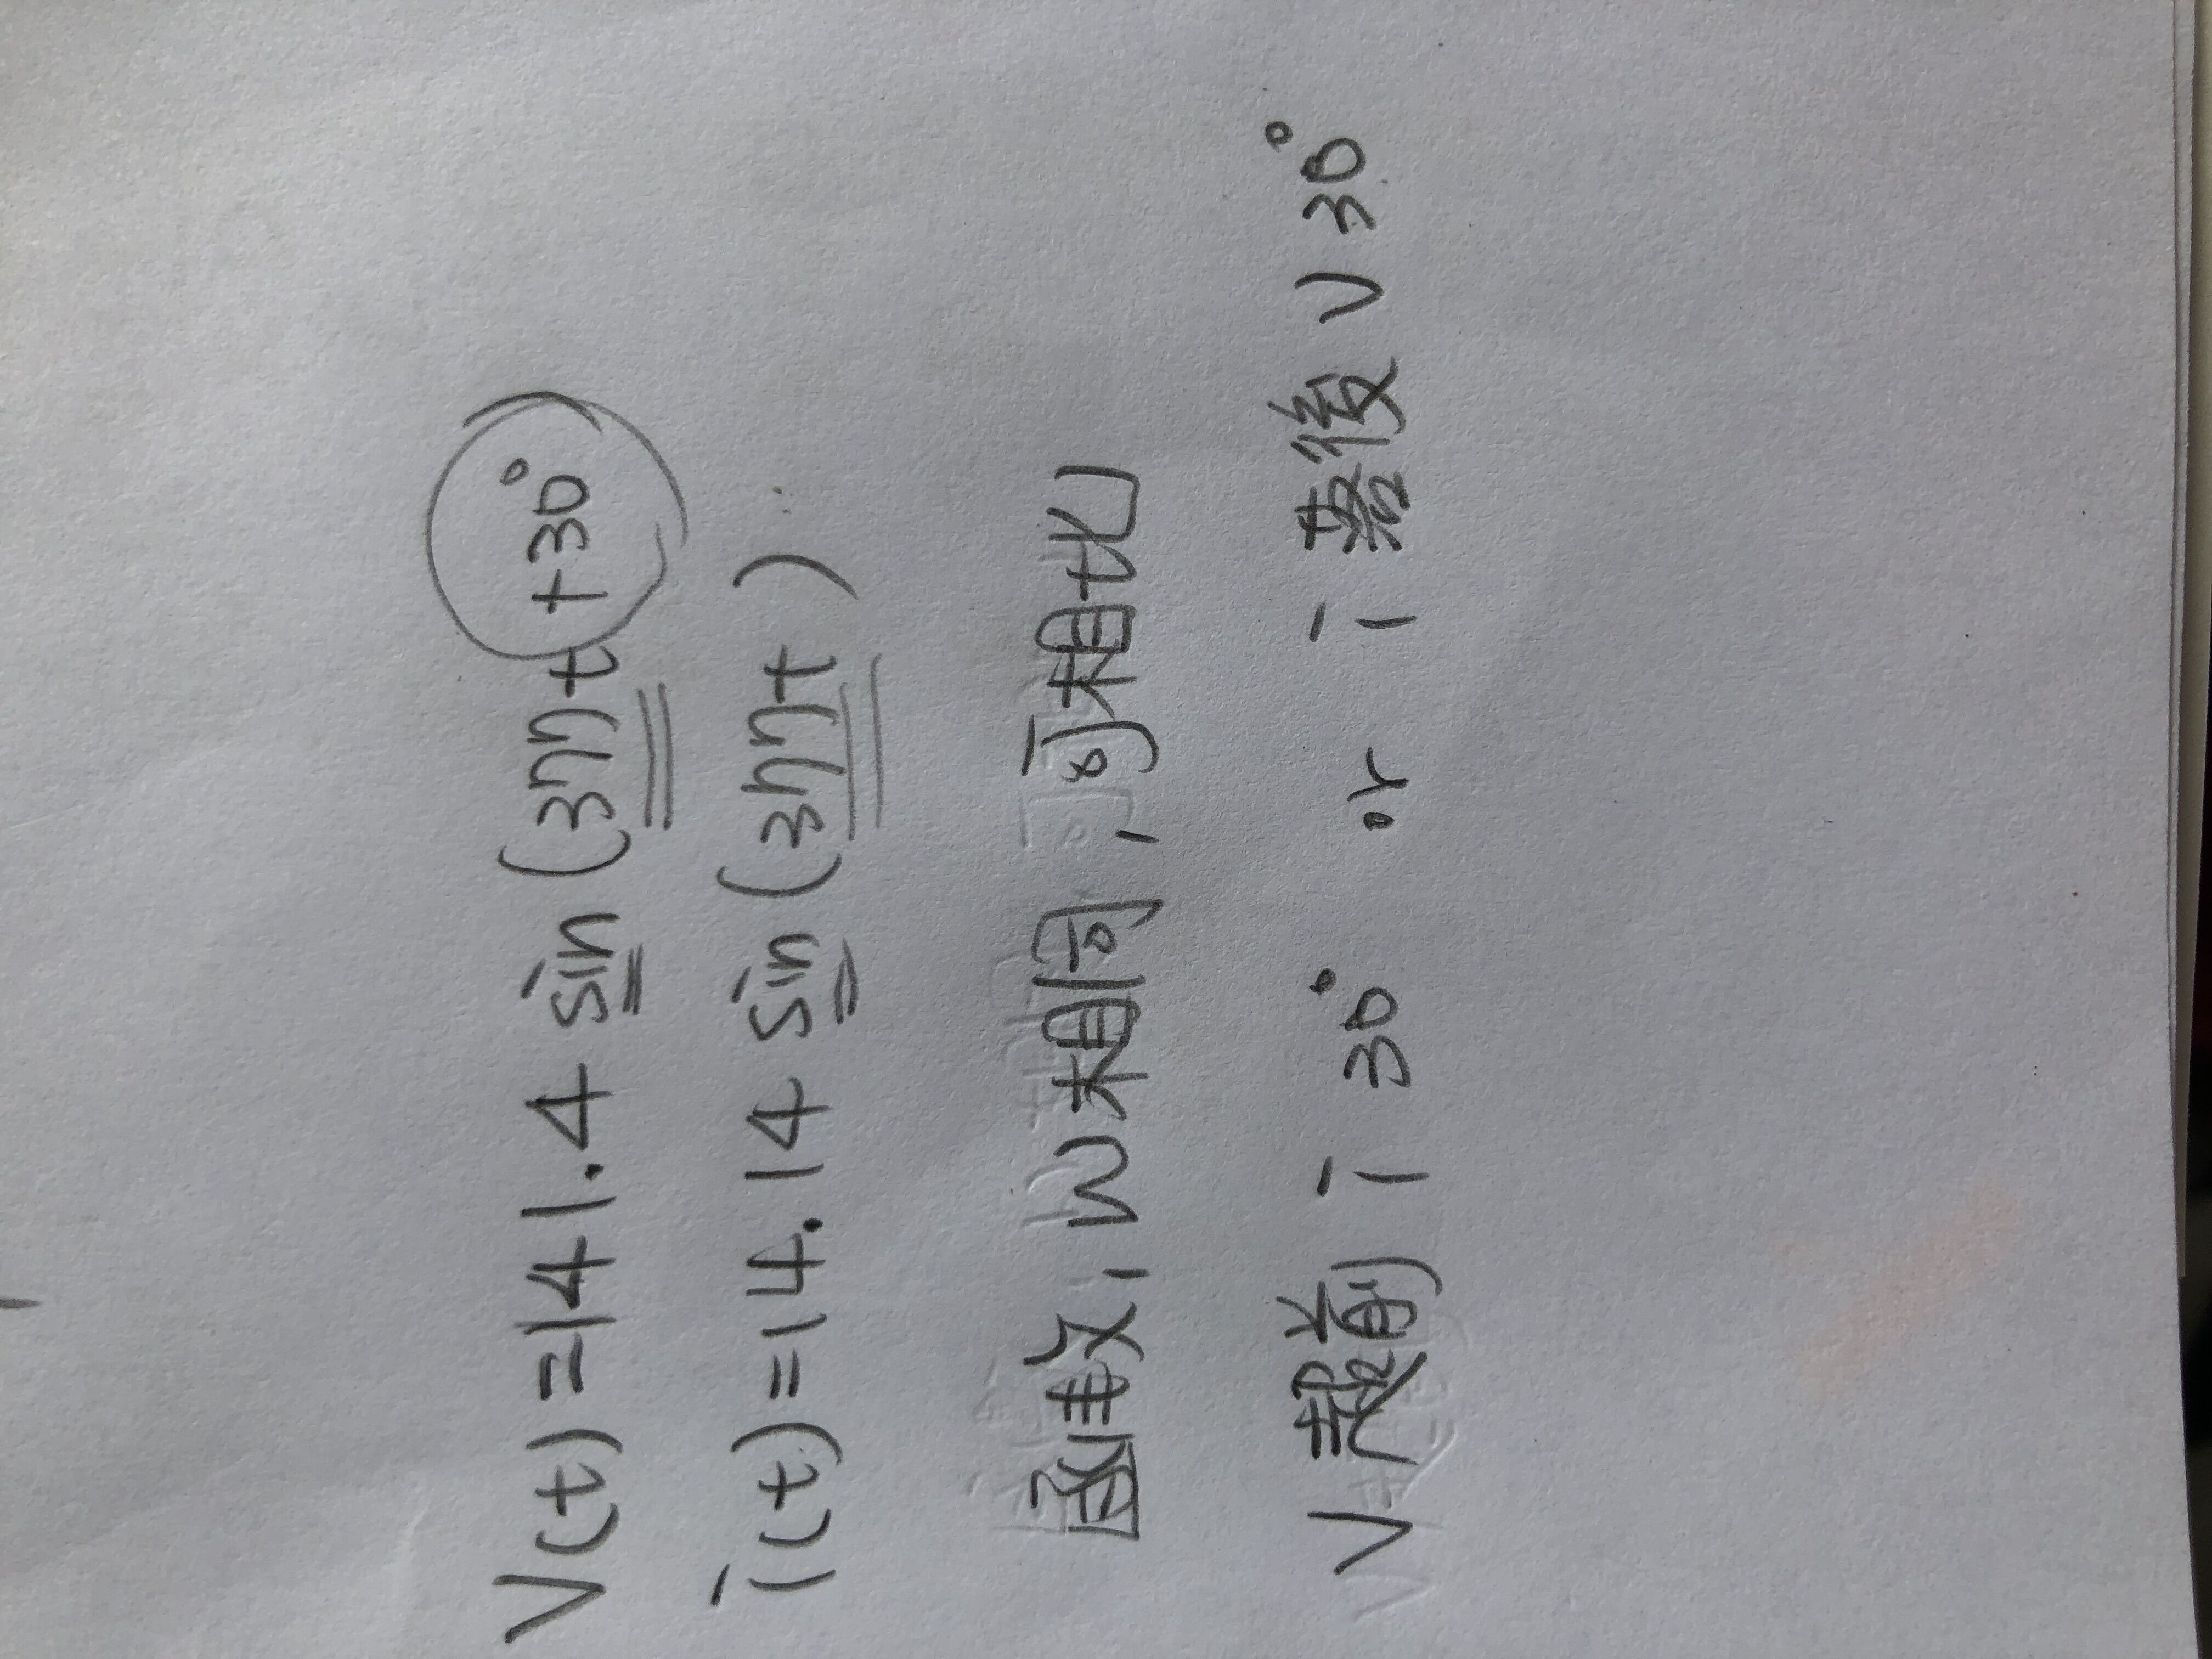 V(t)=141.4 sin(377t+30°)
i(t)=14.14 sin(377t)
函數,W相同,可相比
V超前 i 30° or i 落後 V 30°